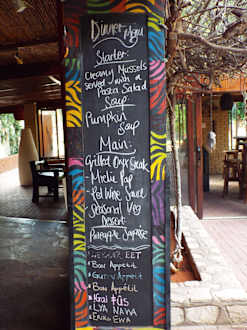 Dinner Menu
Starter:
Creamy Mussels
served with a
Pasta Salad
Soup
Pumpkin
Soup
Main:
Grilled Oryx Steak
- Mielie Pap
- Red Wine Sauce
- Seasonal Veg
Dessert:
Pineapple
EET
Bon Appetit
Guten Appetit
Bon Appétit
!Gâi ǂûs
LYA NAWA
EWA